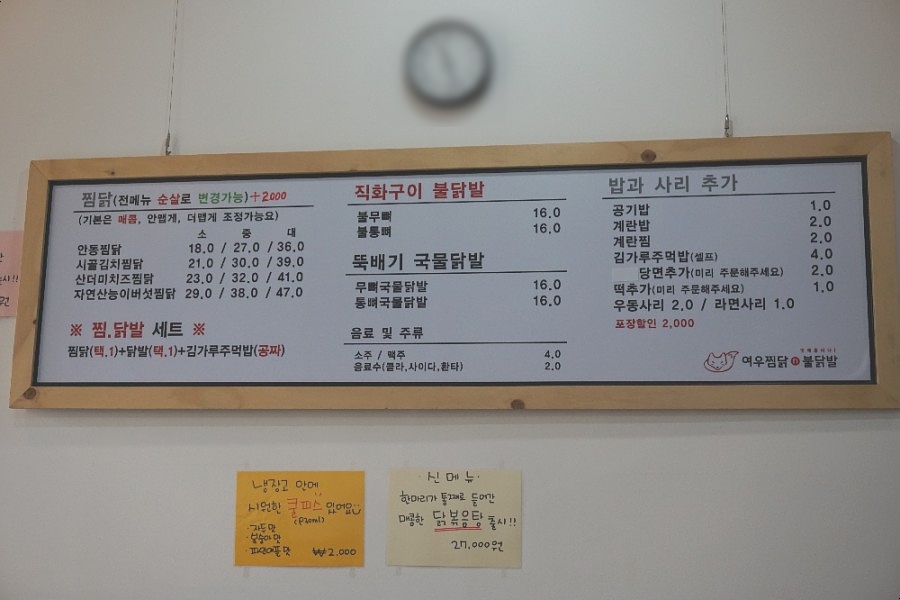 찜닭(전메뉴 순살로 변경가능)+2000
(기본은 매콤, 안맵게, 더맵게 조정가능요)
소 중 대
안동찜닭 18.0 / 27.0 / 36.0
시골김치찜닭 21.0 / 30.0 / 39.0
산더미치즈찜닭 23.0 / 32.0 / 41.0
자연산능이버섯찜닭 29.0 / 38.0 / 47.0
※ 찜.닭발 세트 ※
찜닭(택.1)+닭발(택.1)+김가루주먹밥(공짜)
직화구이 불닭발
불무뼈 16.0
불통뼈 16.0
뚝배기 국물닭발
무뼈국물닭발 16.0
통뼈국물닭발 16.0
음료 및 주류
소주 / 맥주 4.0
음료수(콜라,사이다,환타) 2.0
밥과 사리 추가
공기밥 1.0
계란밥 2.0
계란찜 2.0
김가루주먹밥(셀프) 4.0
당면추가(미리 주문해주세요) 2.0
떡추가(미리 주문해주세요) 1.0
우동사리 2.0 / 라면사리 1.0
포장할인 2,000
여우찜닭 n 불닭발
냉장고 안에
시원한 쿨피스 있어요
·자두맛
·복숭아맛
·파인애플맛 ₩2.000
·신메뉴·
한마리가 통째로 들어간
매콤한 닭볶음탕 출시!!
27.000원